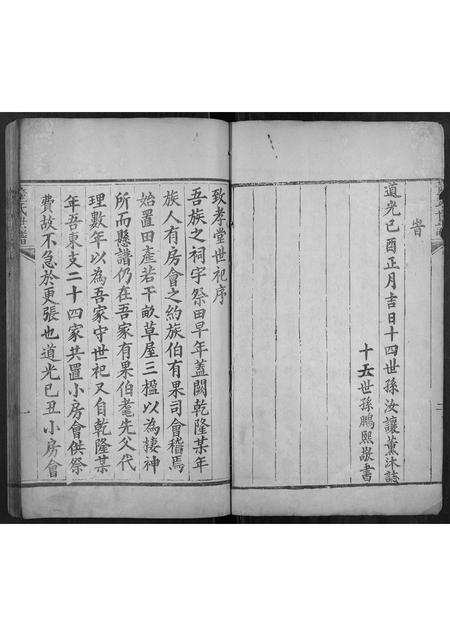 旹
道光己酉正月吉日十四世孫汝讓薰沐誌
十五世孫鵬熙敬書
致孝堂世祀序
吾族之祠宇祭田早年蓋闕乾隆某年
族人有房會之約族伯有果司會稽焉
始置田產若干畝草屋三楹以為棲神
所而懸譜仍在吾家有果伯耄先父代
理數年以為吾家守世祀又自乾隆某
年吾東支二十四家共置小房會供祭
費故不急於更張也道光己丑小房會
氏世譜
一
二